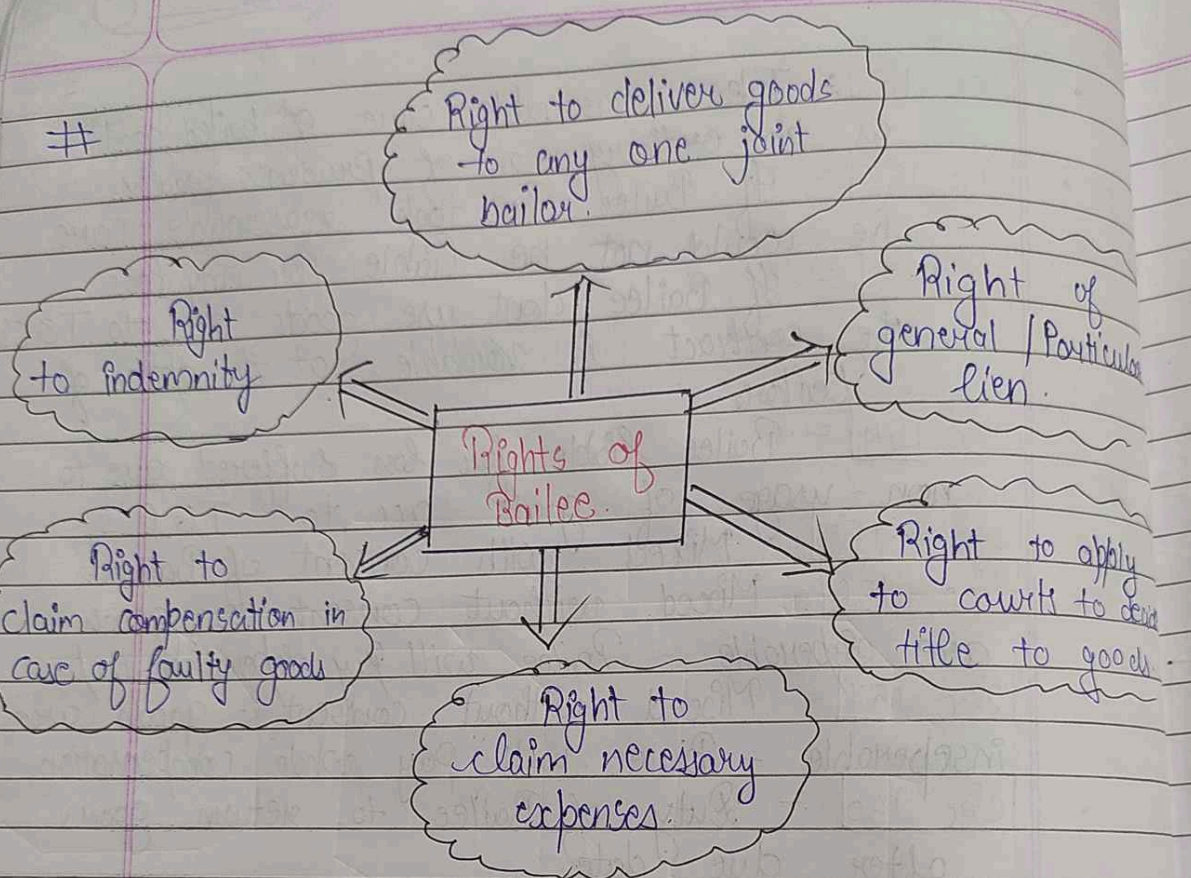 #
Right to deliver goods
to any one joint
bailor.
Right
to indemnity
Right of
general / Particular
lien.
Rights of
Bailee.
Right to
claim compensation in
case of faulty goods
Right to apply
to courts to
title to goods.
Right to
claim necessary
expenses.